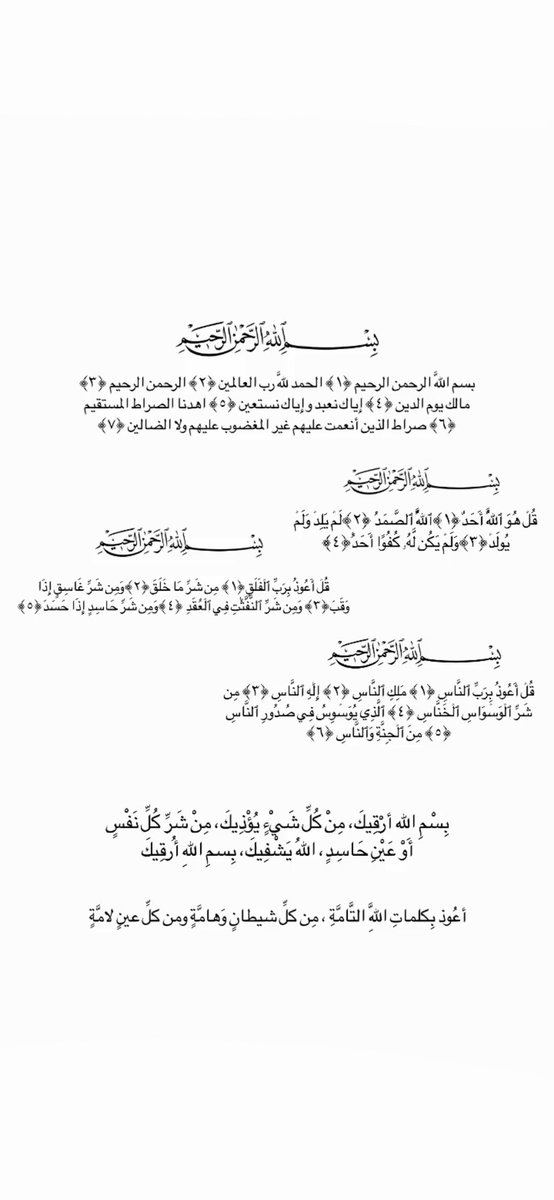 بِسْمِ اللهِ الرَّحْمٰنِ الرَّحِيْمِ
بسم اللَّه الرحمن الرحيم ﴿١﴾ الحمد للَّه رب العالمين ﴿٢﴾ الرحمن الرحيم ﴿٣﴾
مالك يوم الدين ﴿٤﴾ إياك نعبد وإياك نستعين ﴿٥﴾ اهدنا الصراط المستقيم
﴿٦﴾ صراط الذين أنعمت عليهم غير المغضوب عليهم ولا الضالين ﴿٧﴾
بِسْمِ اللهِ الرَّحْمٰنِ الرَّحِيْمِ
قُلْ هُوَ ٱللَّهُ أَحَدٌ﴿١﴾ٱللَّهُ ٱلصَّمَدُ ﴿٢﴾لَمْ يَلِدْ وَلَمْ
يُولَدْ﴿٣﴾وَلَمْ يَكُن لَّهُۥ كُفُوًا أَحَدٌ﴿٤﴾
بِسْمِ اللهِ الرَّحْمٰنِ الرَّحِيْمِ
قُلْ أَعُوذُ بِرَبِّ الْفَلَقِ﴿١﴾ مِن شَرِّ مَا خَلَقَ﴿٢﴾وَمِن شَرِّ غَاسِقٍ إِذَا
وَقَبَ﴿٣﴾ وَمِن شَرِّ النَّفَّٰثَٰتِ فِي الْعُقَدِ ﴿٤﴾وَمِن شَرِّ حَاسِدٍ إِذَا حَسَدَ﴿٥﴾
بِسْمِ اللهِ الرَّحْمٰنِ الرَّحِيْمِ
قُلْ أَعُوذُ بِرَبِّ ٱلنَّاسِ ﴿١﴾ مَلِكِ ٱلنَّاسِ ﴿٢﴾ إِلَٰهِ ٱلنَّاسِ ﴿٣﴾ مِن
شَرِّ ٱلْوَسْوَاسِ ٱلْخَنَّاسِ ﴿٤﴾ ٱلَّذِي يُوَسْوِسُ فِي صُدُورِ ٱلنَّاسِ
﴿٥﴾ مِنَ ٱلْجِنَّةِ وَٱلنَّاسِ ﴿٦﴾
بِسْمِ الله أَرْقِيكَ، مِنْ كُلِّ شَيْءٍ يُؤْذِيكَ، مِنْ شَرِّ كُلِّ نَفْسٍ
أَوْ عَيْنِ حَاسِدٍ، اللهُ يَشْفِيكَ، بِسمِ اللهِ أُرقِيكَ
أعُوذ بِكلماتِ اللَّهِ التَّامَّةِ ، مِن كلِّ شيطانٍ وَهامَّةٍ ومن كلِّ عينٍ لامَّةٍ